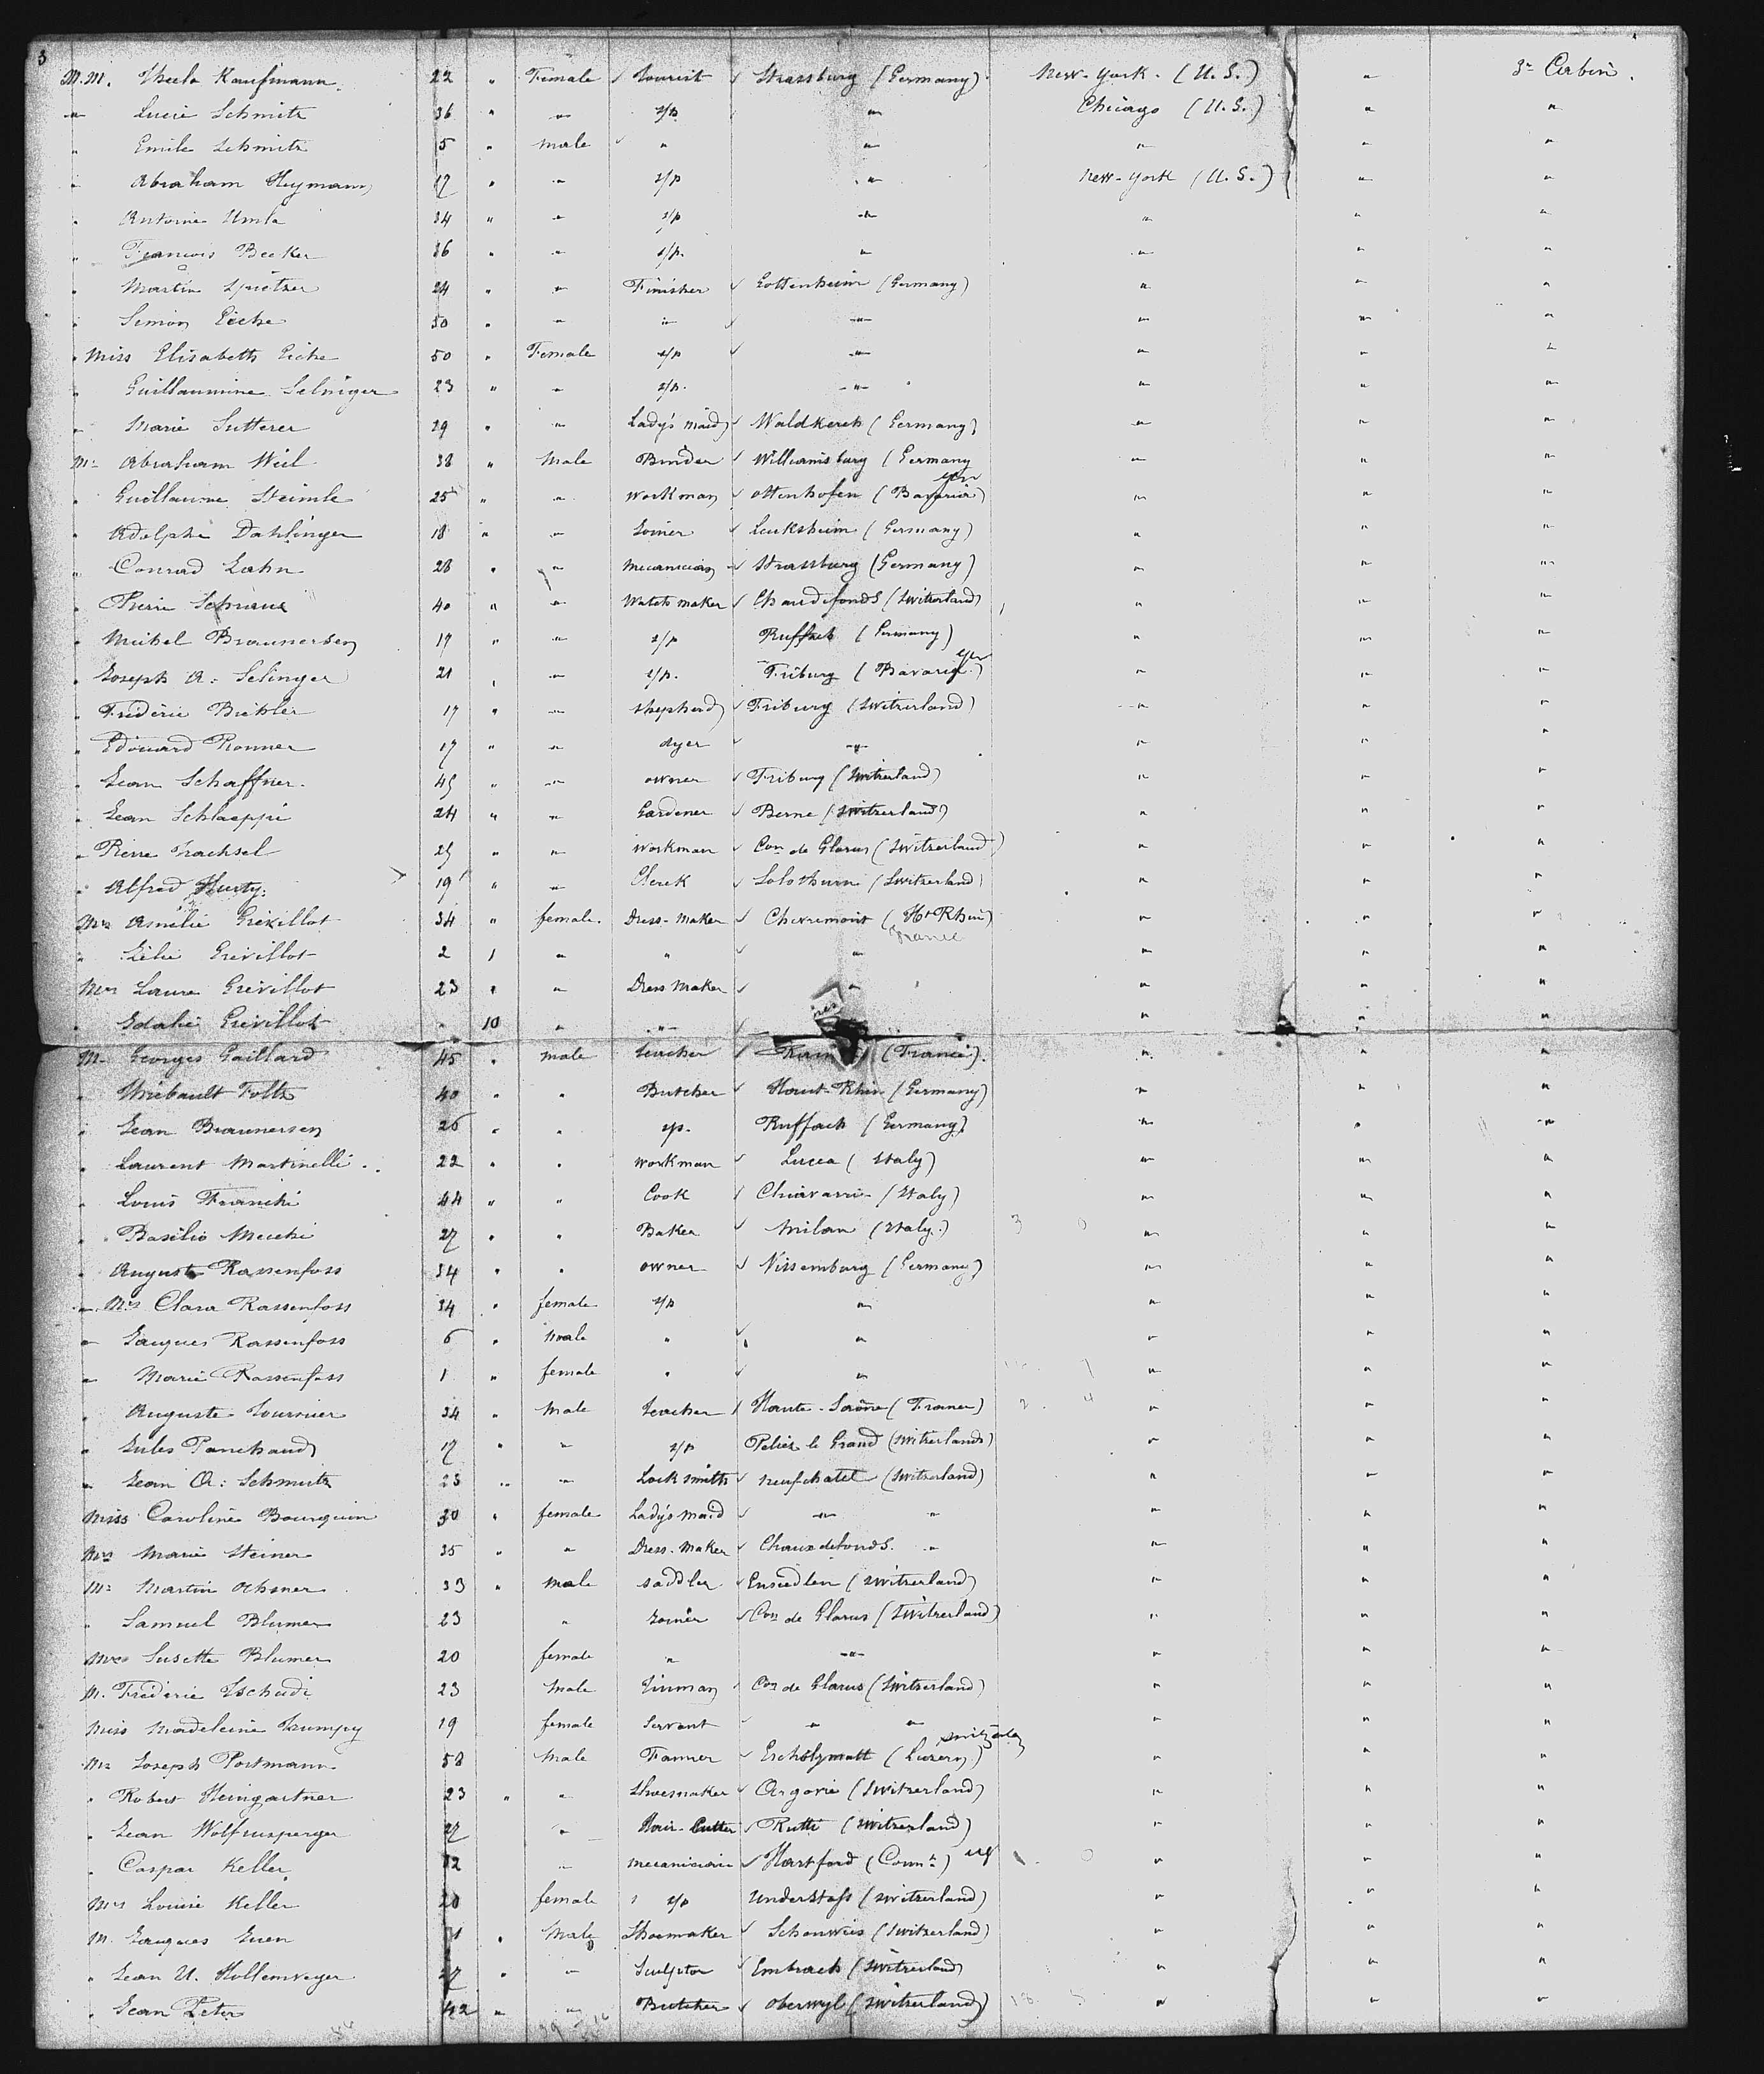 3
M.M. Thecla Kaufmann. 22 " Female Tourist Strassburg (Germany) New-York. (U.S.) " 3e Cabin.
" Lucie Schmitz 36 " " s/p " Chicago (U.S.) " "
" Emile Schmitz 5 " Male " " " " "
" Abraham Heymann 17 " " s/p " New-York (U.S.) " "
" Antoine Umla 34 " " s/p " " " "
" François Becker 36 " " s/p. " " " "
" Martin Spietzer 24 " " Finisher Gottenheim (Germany) " " "
" Simon Eiche 50 " " " " " " "
" Miss Elisabeth Eiche 50 " Female s/p " " " "
" Guillaumine Selinger 23 " " s/p. " " " "
" Marie Sutterer 29 " " Lady's maid Waldkerch (Germany) " " "
Mr Abraham Weil 38 " Male Binder Williamsburg (Germany " " "
" Guillaume Steimle 25 " " Workman Ottenhofen (Bavaria) Ger " " "
" Adolphe Dahlinger 18 " " Joiner Leuksheim (Germany) " " "
" Conrad Lahn 28 " " Mecanician Strassburg (Germany) " " "
" Pierre Schraux 40 " " Watch maker Chaudefonds (Switzerland) " " "
" Michel Braunersen 17 " " s/p Ruffach (Germany) " " "
" Joseph A: Selinger 21 " " s/p. Friburg (Bavaria) Ger " " "
" Frédéric Biebler 17 " " Shepherd Friburg (Switzerland) " " "
" Edouard Ronner 17 " " dyer " " " "
" Jean Schaffner. 45 " " owner Friburg (Switzerland) " " "
" Jean Schlaeppi 24 " " Gardener Berne (Switzerland) " " "
" Pierre Trachsel 25 " " Workman Con de Glarus (Switzerland) " " "
" Alfred Hurty: 19 " " Clerck Solothurn (Switzerland) " " "
Mrs Amélie Grévillot 34 " female. Dress-Maker Chevremont (Ht Rhin) France " " "
" Lélie Grévillot 2 1 " " " " " "
Mrs Laure Grévillot 23 " " Dress Maker " " " "
" Idalie Grévillot " 10 " " " " "
M. Georges Gaillard 45 " male teacher (France). " " "
" Thiebault Foltz 40 " " Butcher Haut-Rhin (Germany) " " "
" Jean Braunersen 26 " " s/p. Ruffach (Germany) " " "
" Laurent Martinelli. 22 " " Workman Lucca (Italy) " " "
" Louis Franchi 44 " " Cook Chiavarri (Italy) " " "
" Basilio Mecchi 27 " " Baker Milan (Italy.) " " "
" Auguste Rassenfoss 34 " " owner Vissemburg (Germany) " " "
" Mrs Clara Rassenfoss 34 " female s/p " " " "
" Jacques Rassenfoss 6 " Male " " " " "
" Marie Rassenfoss 1 " female " " " " "
" Auguste Tournier 34 " Male Teacher Haute-Saône (France) " " "
" Jules Panchaud 17 " " s/p Poliez le Grand (Switzerland) " " "
" Jean A: Schmutz 23 " " Lock smith Neufchatel (Switzerland) " " "
Miss Caroline Bourquin 30 " female Lady's maid " " " " "
Mrs Marie Steiner 35 " " Dress-Maker Chauxdefonds. " " " "
Mr Martin Ochsner 33 " Male saddler Ensiedlen (Switzerland) " " "
" Samuel Blumer 23 " Joiner Con de Glarus (Switzerland) " " "
Mrs Susette Blumer 20 female " " " " "
M. Frédéric Tschudi 23 Male Tinman Con de Glarus (Switzerland) " " "
Miss Madeleine Trumpy 19 female Servant " " " " "
Mr Joseph Portmann 58 Male Farmer Escholzmatt (Luzern) " " "
" Robert Heingartner 23 " " Shoemaker Argovie (Switzerland) " " "
" Jean Wolfensperger 27 " Hair-Cutter Rutti (Switzerland) " " "
" Caspar Keller 32 " mecanician Hartford (Connt) " " "
Mrs Louise Keller 20 female s/p Understafs (Switzerland) " " "
M. Jacques Suen " Male Shoemaker Schonweis (Switzerland) " " "
" Jean U. Hollenweger 27 " " Sculptor Embrach (Switzerland) " " "
" Jean Peter 42 " " Butcher Oberwyl (Switzerland) " " "